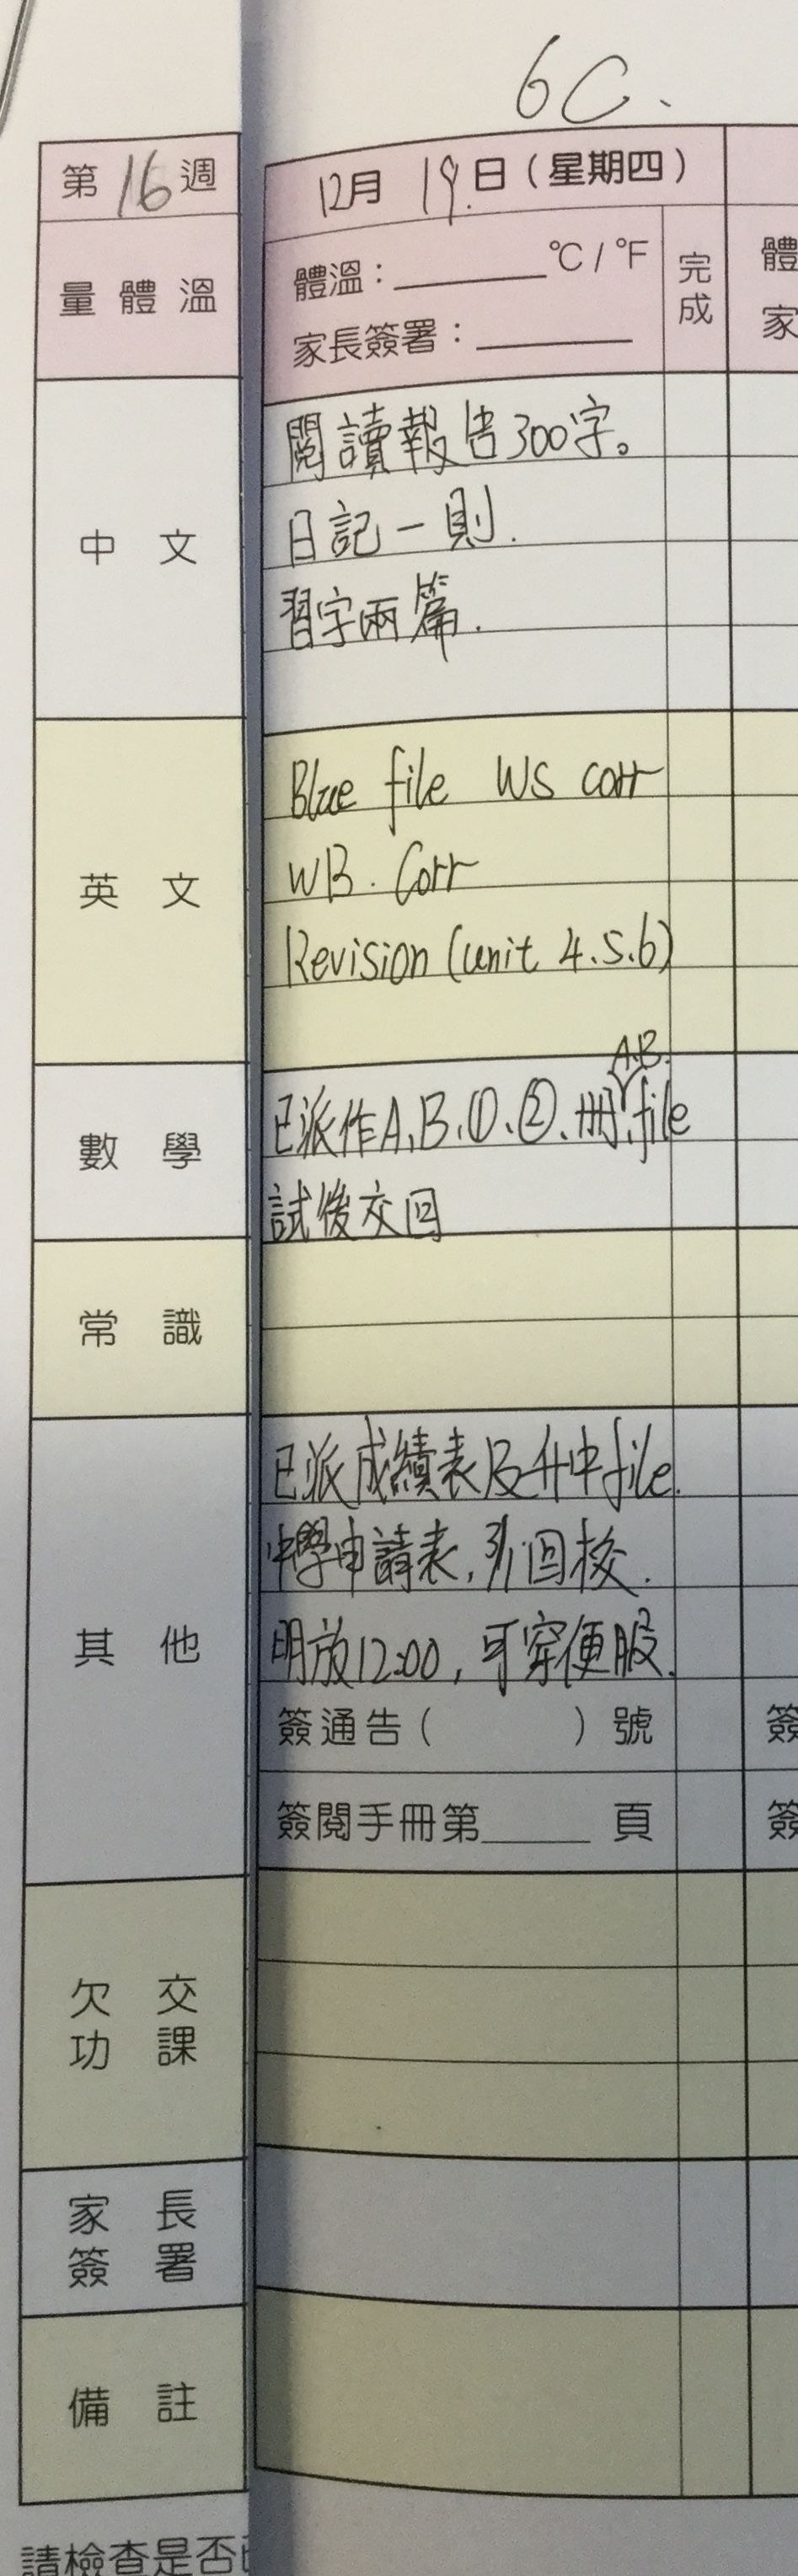 6C.
第16週
12月19日(星期四)
量體溫
體溫:______°C/°F
家長簽署:______
完成
體
家
中文
閱讀報告300字。
日記一則.
習字兩篇.
英文
Blue file WS corr
WB. Corr
Revision (unit 4.5.6)
數學
A.B.
已派作A、B、①、②、冊、file
試後交回
常識
其他
已派成績表及升中file.
中學申請表,3/1回校.
明放12:00,可穿便服.
簽通告( )號
簽
簽閱手冊第_____頁
簽
欠交
功課
家長
簽署
備註
請檢查是否已